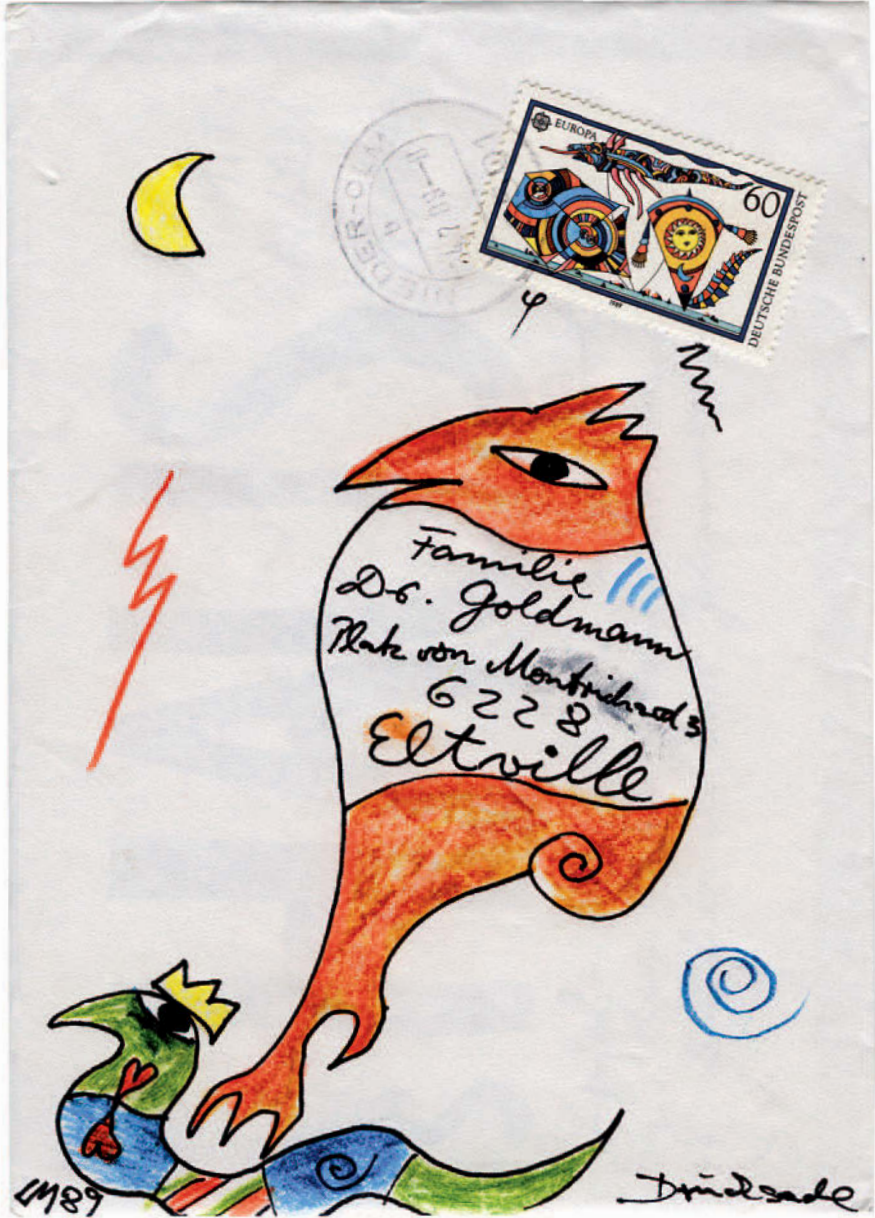 EUROPA
60
DEUTSCHE BUNDESPOST
1989
Familie
Dr. Goldmann
Platz von Montrichard 3
6228
Eltville
89
Drucksache